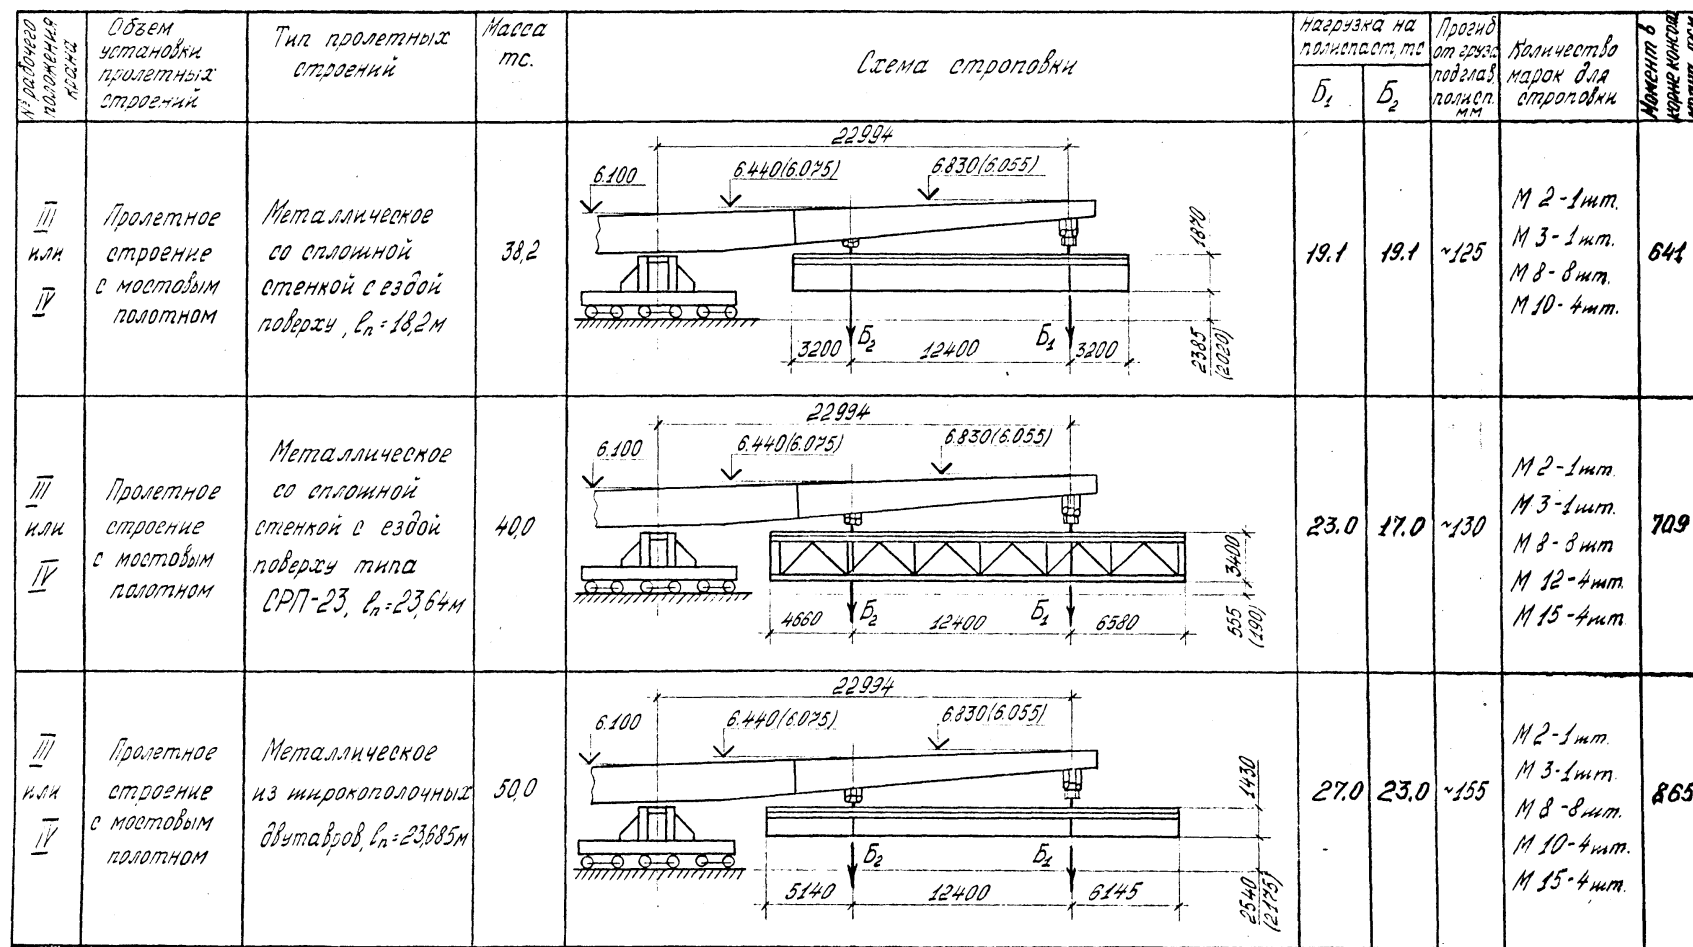 № рабочего
положения
крана
Объем
установки
пролетных
строений
Тип пролетных
строений
Масса
тс.
Схема строповки
Нагрузка на
полиспаст, тс
Б₁
Б₂
Прогиб
от груза
под глав.
полисп.
мм
Количество
марок для
строповки
Момент в
корне консоли
III
или
IV
Пролетное
строение
с мостовым
полотном
Металлическое
со сплошной
стенкой с ездой
поверху, ℓп=18,2м
38,2
22994
6.100
6.440(6.075)
6.830(6.055)
1870
Б₂
Б₁
3200
12400
3200
2385
(2020)
19.1
19.1
~125
М 2-1шт.
М 3-1шт.
М 8-8шт.
М 10-4шт.
641
III
или
IV
Пролетное
строение
с мостовым
полотном
Металлическое
со сплошной
стенкой с ездой
поверху типа
СРП-23, ℓп=23,64м
40,0
22994
6.100
6.440(6.075)
6.830(6.055)
3400
Б₂
Б₁
4660
12400
6580
555
(190)
23.0
17.0
~130
М 2-1шт.
М 3-1шт.
М 8-8шт
М 12-4шт.
М 15-4шт.
709
III
или
IV
Пролетное
строение
с мостовым
полотном
Металлическое
из широкополочных
двутавров, ℓп=23,685м
50,0
22994
6.100
6.440(6.075)
6.830(6.055)
1430
Б₂
Б₁
5140
12400
6145
2540
(2175)
27.0
23.0
~155
М 2-1шт.
М 3-1шт.
М 8-8шт.
М 10-4шт.
М 15-4шт.
865